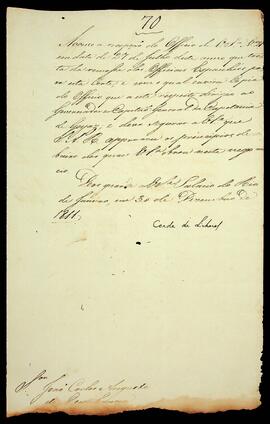 70
Accuso a recepção do Officio de V. S.ª N.º
em data de 27 de Julho deste anno que tra-
ta da remessa dos Officiaes Espanhoes para
esta Corte, e em o qual enviou Copia
do Officio que a este respeito dirigio ao
Governador e Capitão General da Capitania
de Goyaz, e devo segurar a V. S.ª que
S. A. R. approvou os principios de
baixo dos quaes V. S.ª obrou neste nego-
cio.
Deos guarde a V. S.ª Palacio do Rio
de Janeiro em 30 de Dezembro de
1811.
Conde de Linhares
Snr. João Carlos Augusto